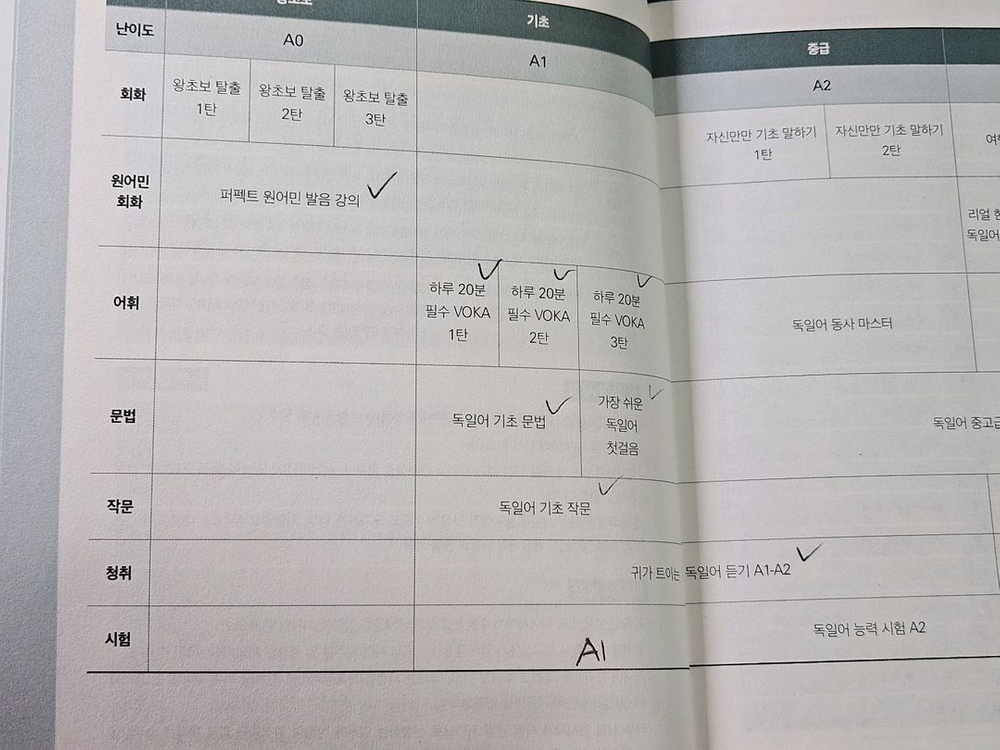 기초
중급
난이도
A0
A1
A2
회화
왕초보 탈출
1탄
왕초보 탈출
2탄
왕초보 탈출
3탄
자신만만 기초 말하기
1탄
자신만만 기초 말하기
2탄
원어민
회화
퍼펙트 원어민 발음 강의
리얼
독일어
어휘
하루 20분
필수 VOKA
1탄
하루 20분
필수 VOKA
2탄
하루 20분
필수 VOKA
3탄
독일어 동사 마스터
문법
독일어 기초 문법
가장 쉬운
독일어
첫걸음
독일어 중고급
작문
독일어 기초 작문
청취
귀가 트이는 독일어 듣기 A1-A2
시험
A1
독일어 능력 시험 A2